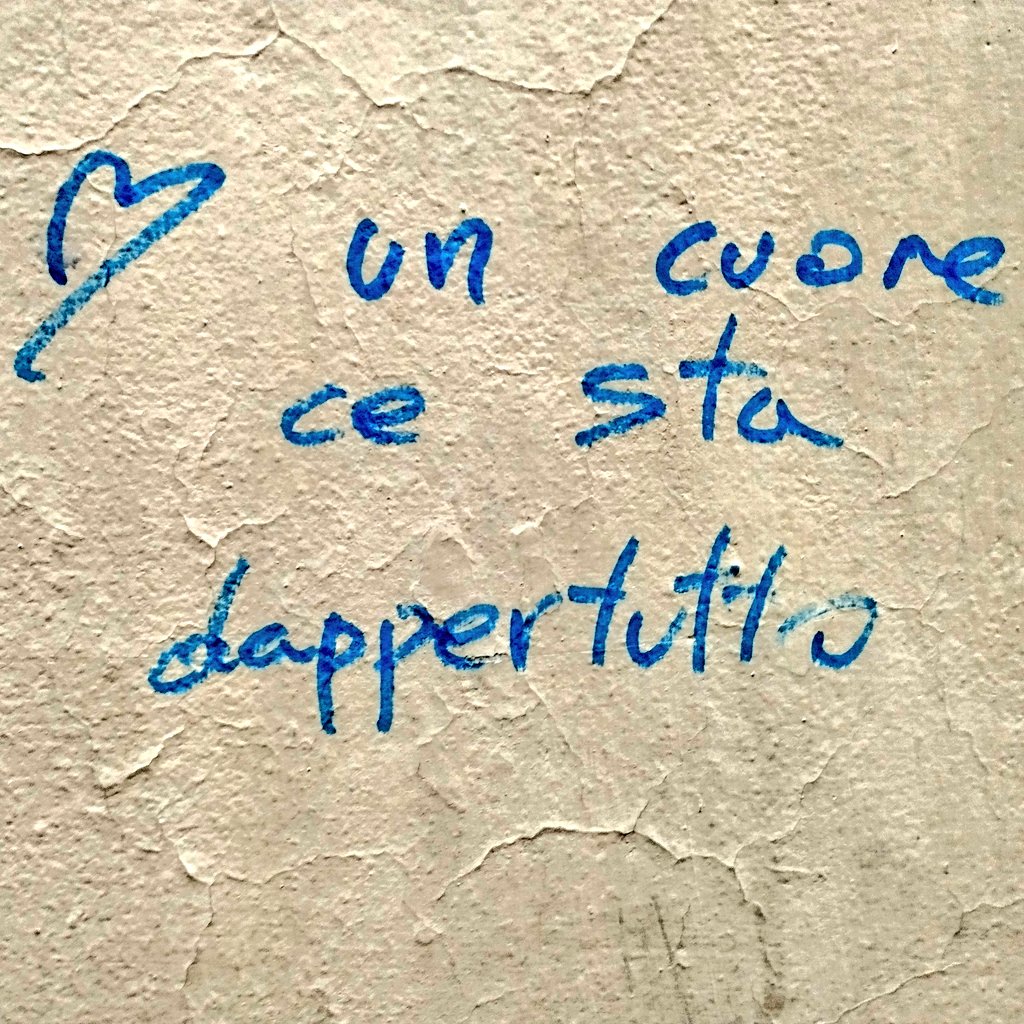 un cuore
ce sta
dappertutto